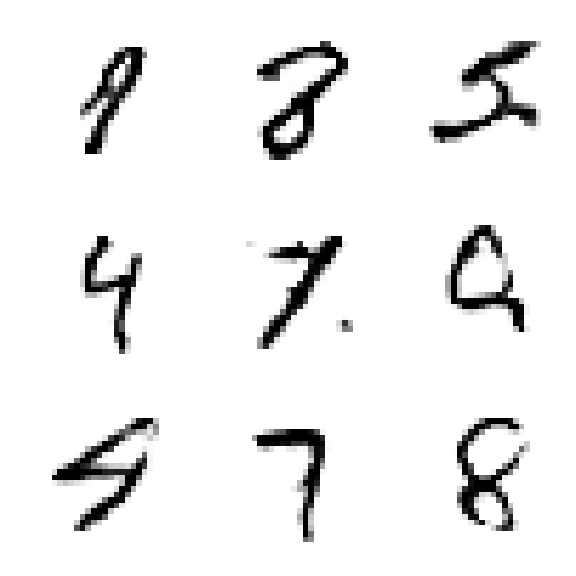 9 8 5
4 7 9
9 7 8